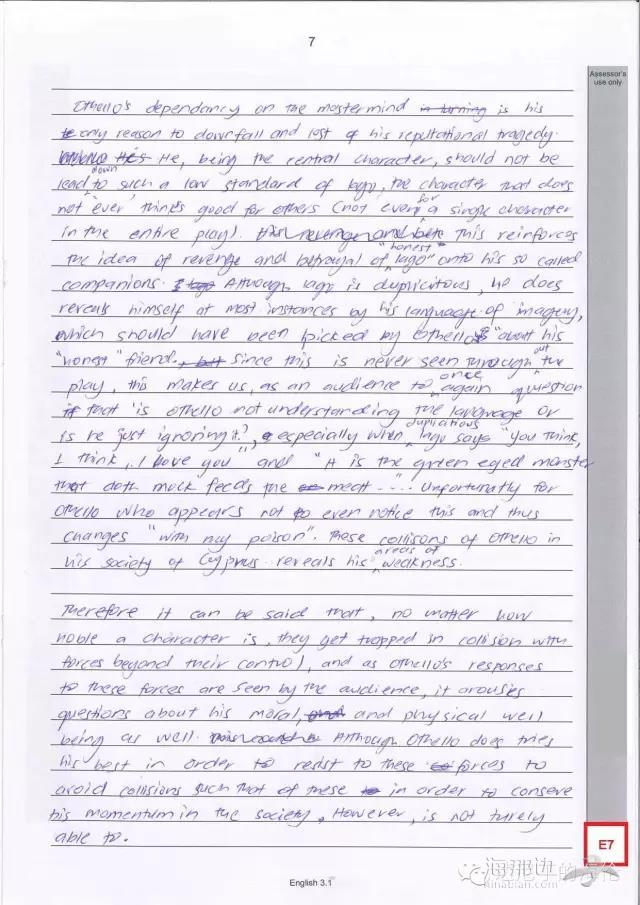 7
Assessor's
use only
Othello's dependancy on the mastermind in turning is his
only reason to downfall and lost of his reputational tragedy.
He, being the central character, should not be
lead down to such a low standard of Iago, the character that does
not 'ever' thinks good for others (not even for a single character
in the entire play). This reinforces
the idea of revenge and betrayal of "honest Iago" onto his so called
companions. Although Iago is duplicitous, he does
reveals himself at most instances by his language of imagery,
which should have been picked by Othello about his
"honest" friend. Since this is never seen throughout the
play, this makes us, as an audience to once again question
that 'is Othello not understanding the language or
is he just ignoring it?', especially when duplicitious Iago says "you think,
I think, I love you" and "it is the green eyed monster
that doth mock feeds the meat ..... Unfortunatly for
Othello who appears not to ever notice this and thus
changes "with my poison". These collisons of Othello in
his society of Cyprus reveals his areas of weakness.
Therefore it can be said that, no matter how
noble a character is, they get trapped in collision with
forces beyond their control, and as Othello's responses
to these forces are seen by the audience, it arouses
questions about his moral, and physical well
being as well. Although Othello does tries
his best in order to resist to these forces to
avoid collisions such that of these in order to conserve
his momentum in the society, However, is not turely
able to.
E7
English 3.1
hinabian.com